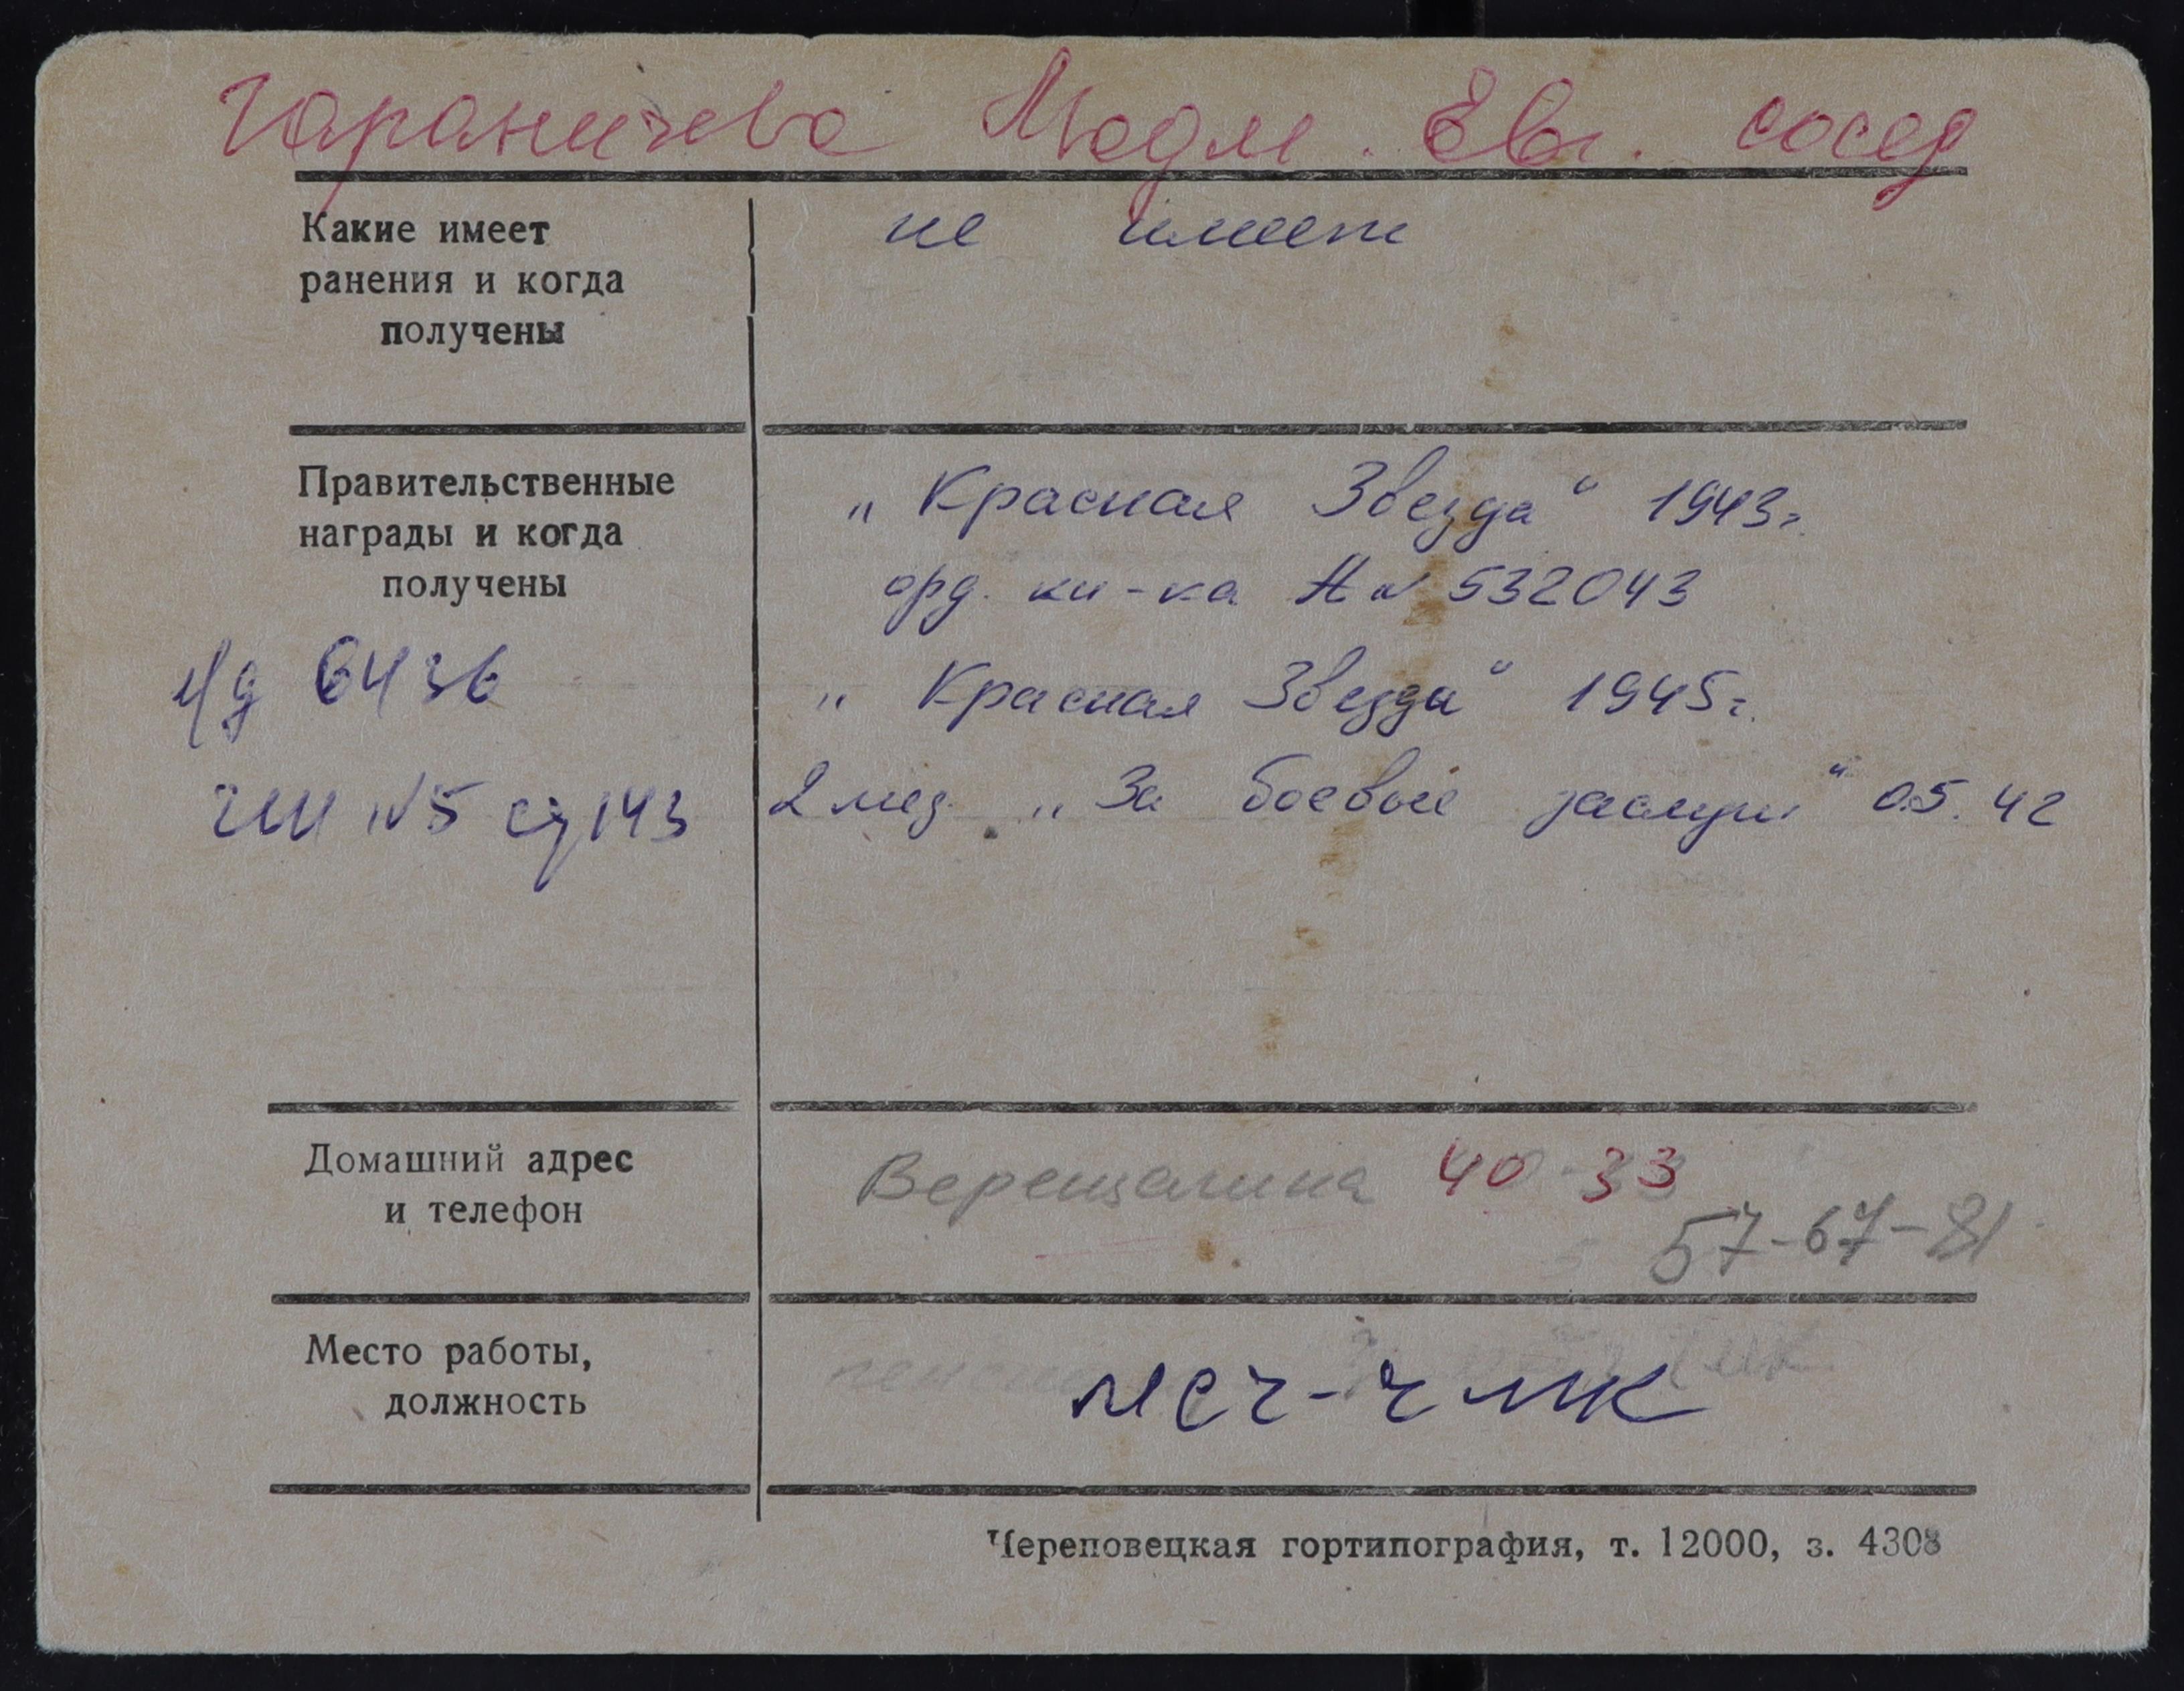 Гараничева Людм. Евг. сосед
Какие имеет
ранения и когда
получены
не имеет
Правительственные
награды и когда
получены
„Красная Звезда“ 1943г.
орд. кн-ка А № 532043
„Красная Звезда“ 1945г.
2 мед. „За боевые заслуги“ 05.42
и/д 6436
ЧМ №5 сд 143
Домашний адрес
и телефон
Верещагина 40-33
57-67-81
Место работы,
должность
мсч-чмк
Череповецкая гортипография, т. 12000, з. 4308